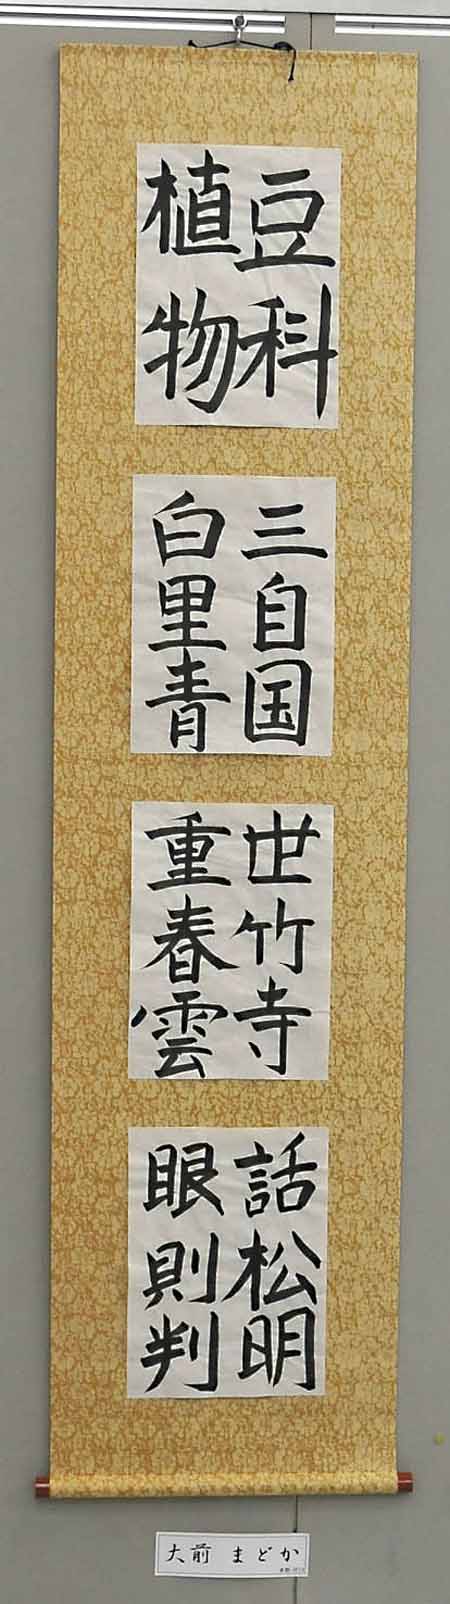 豆科
植物
三自国
白里青
世竹寺
重春雲
話松明
眼則判
大前 まどか